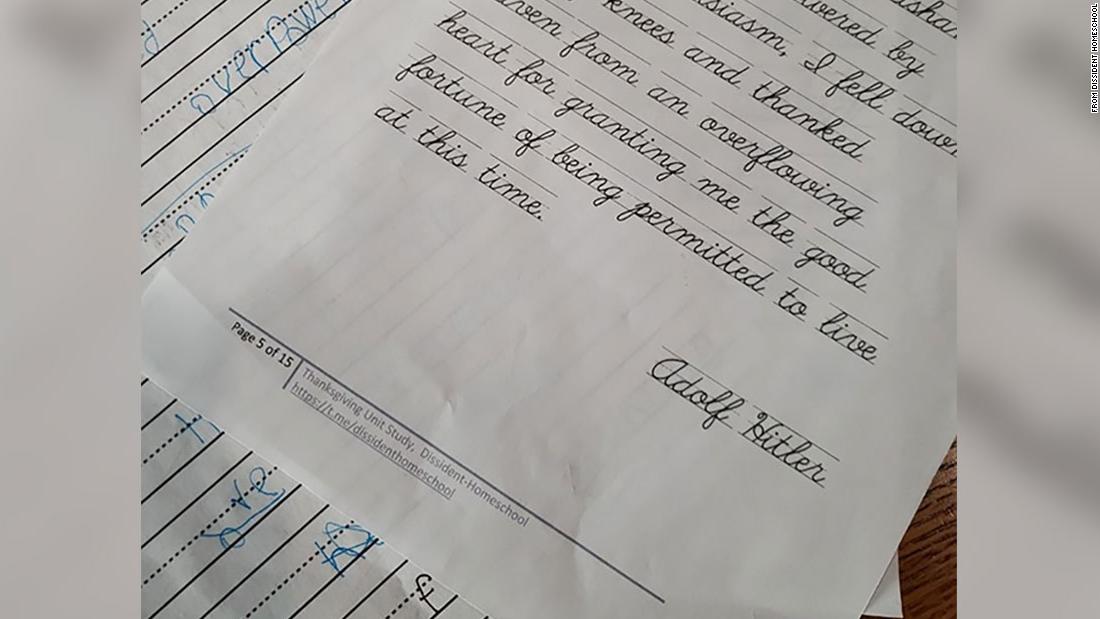 asha
wered by
usiasm, I fell down
knees and thanked
aven from an overflowing
heart for granting me the good
fortune of being permitted to live
at this time.
Adolf Hitler
Page 5 of 15
Thanksgiving Unit Study, Dissident-Homeschool
https://t.me/dissidenthomeschool
FROM DISSIDENT HOMESCHOOL